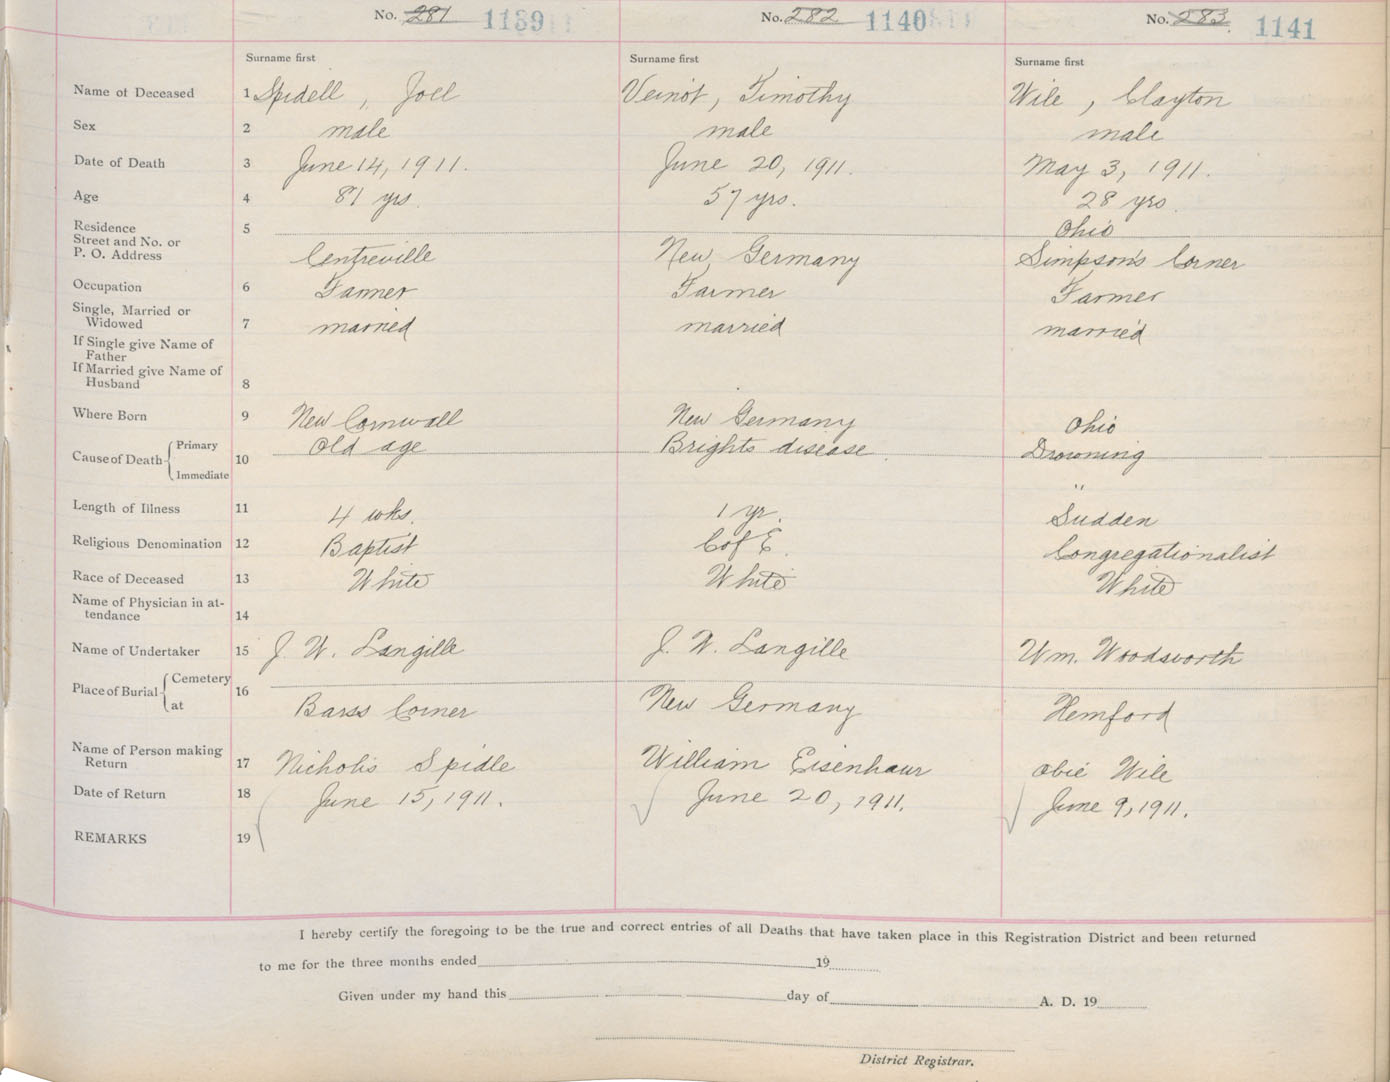 No. 281 1139 No. 282 1140 No. 283 1141
Surname first Surname first Surname first
Name of Deceased 1 Spidell, Joel Veinot, Timothy Wile, Clayton
Sex 2 male male male
Date of Death 3 June 14, 1911. June 20, 1911. May 3, 1911.
Age 4 81 yrs. 57 yrs. 28 yrs
Residence 5 Ohio
Street and No. or
P. O. Address Centreville New Germany Simpson's Corner
Occupation 6 Farmer Farmer Farmer
Single, Married or
Widowed 7 married married married
If Single give Name of
Father
If Married give Name of
Husband 8
Where Born 9 New Cornwall New Germany Ohio
Cause of Death Primary 10 Old age Brights disease Drowning
Immediate "
Length of Illness 11 4 wks. 1 yr. Sudden
Religious Denomination 12 Baptist C of E. Congregationalist
Race of Deceased 13 White White White
Name of Physician in at-
tendance 14
Name of Undertaker 15 J. W. Langille J. W. Langille Wm. Woodsworth
Place of Burial Cemetery 16
at Barss Corner New Germany Hemford
Name of Person making
Return 17 Nicholis Spidle William Eisenhaur Obie Wile
Date of Return 18 June 15, 1911. June 20, 1911. June 9, 1911.
REMARKS 19
I hereby certify the foregoing to be the true and correct entries of all Deaths that have taken place in this Registration District and been returned
to me for the three months ended 19
Given under my hand this day of A. D. 19
District Registrar.